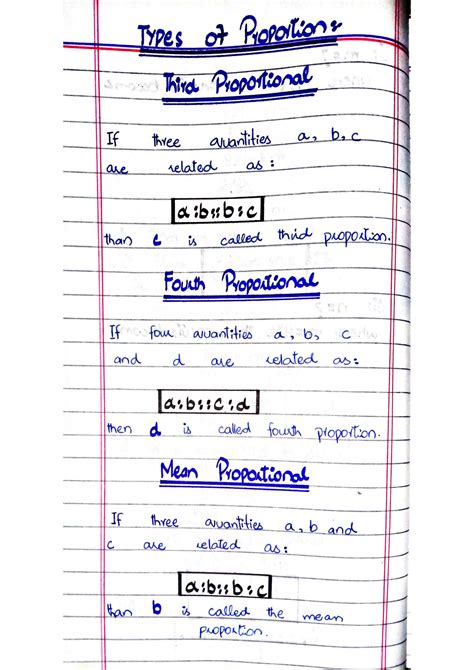 Types of Proportion:
Third Proportional
If three quantities a, b, c
are related as:
a:b::b:c
than c is called third proportion.
Fourth Proportional
If four quantities a, b, c
and d are related as:
a:b::c:d
then d is called fourth proportion.
Mean Proportional
If three quantities a, b and
c are related as:
a:b::b:c
than b is called the mean
proportion.